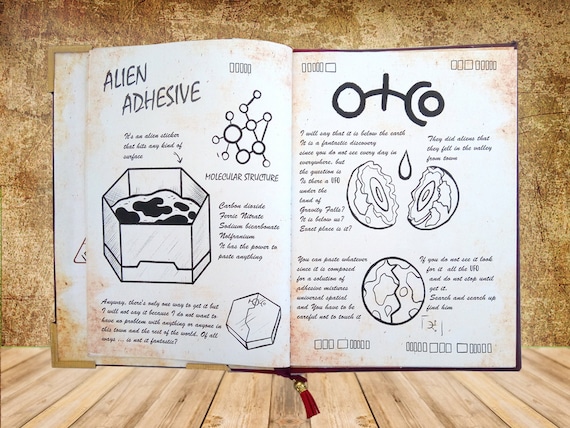 ALIEN
ADHESIVE
It's an alien sticker
that hits any kind of
surface
MOLECULAR STRUCTURE
Carbon dioxide
Ferric Nitrate
Sodium bicarbonate
Nolfranium
It has the power to
paste anything
Anyway, there's only one way to get it but
I will not say it because I do not want to
have no problem with anything or anyone in
this town and the rest of the world. Of all
ways ... is not it fantastic?
I will say that it is below the earth
It is a fantastic discovery
since you do not see every day in
everywhere, but
the question is
Is there a UFO
under the
land of
Gravity Falls?
It is below us?
Exact place is it?
They did aliens that
they fell in the valley
from town
You can paste whatever
since it is composed
for a solution of
adhesive mixtures
universal spatial
and You have to be
careful not to touch it
If you do not see it look
for it all the UFO
and do not stop until
get it.
Search and search up
find him